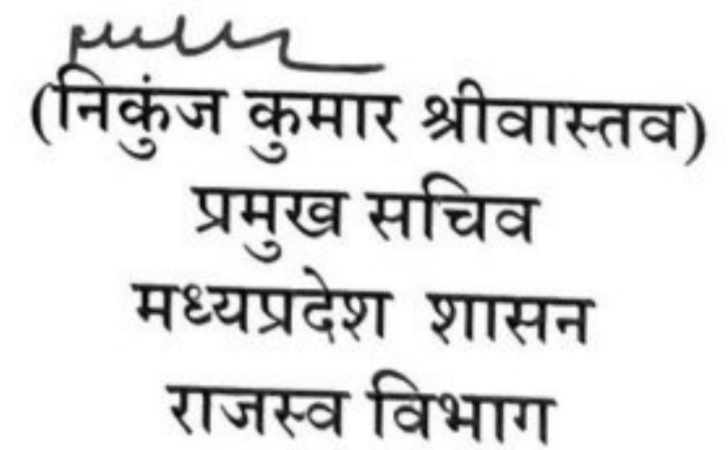 (निकुंज कुमार श्रीवास्तव)
प्रमुख सचिव
मध्यप्रदेश शासन
राजस्व विभाग